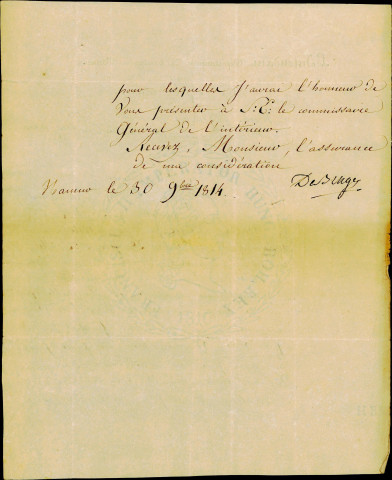 pour lesquelles J'aurai l'honneur de
Vous présenter à S: E: le commissaire
Général de l'intérieur.
Recevez, Monsieur, l'assurance
de ma considération
Namur le 30 9bre 1814.